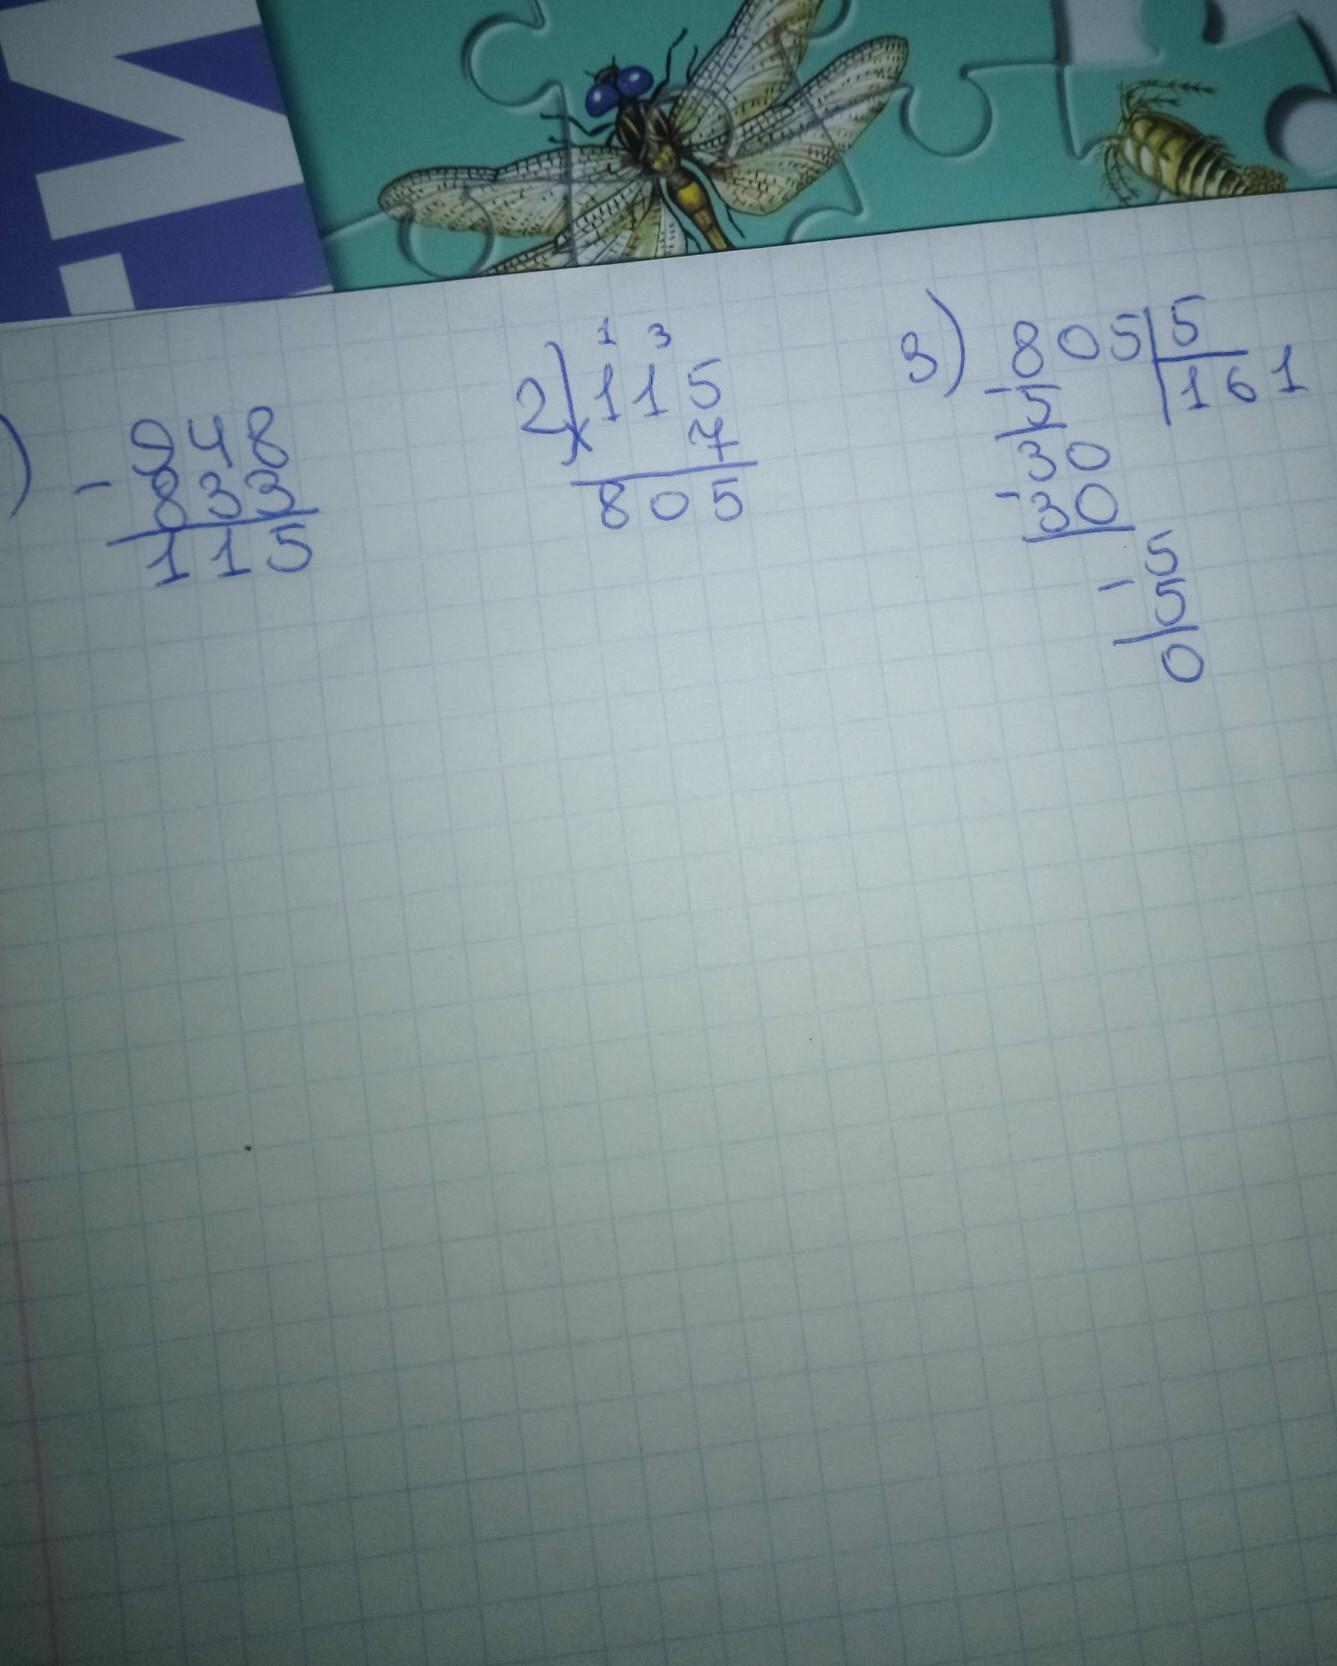 ) 948
- 833
115
1 3
2) 115
x 7
805
3) 805 5
- 5 161
30
- 30
5
- 5
0